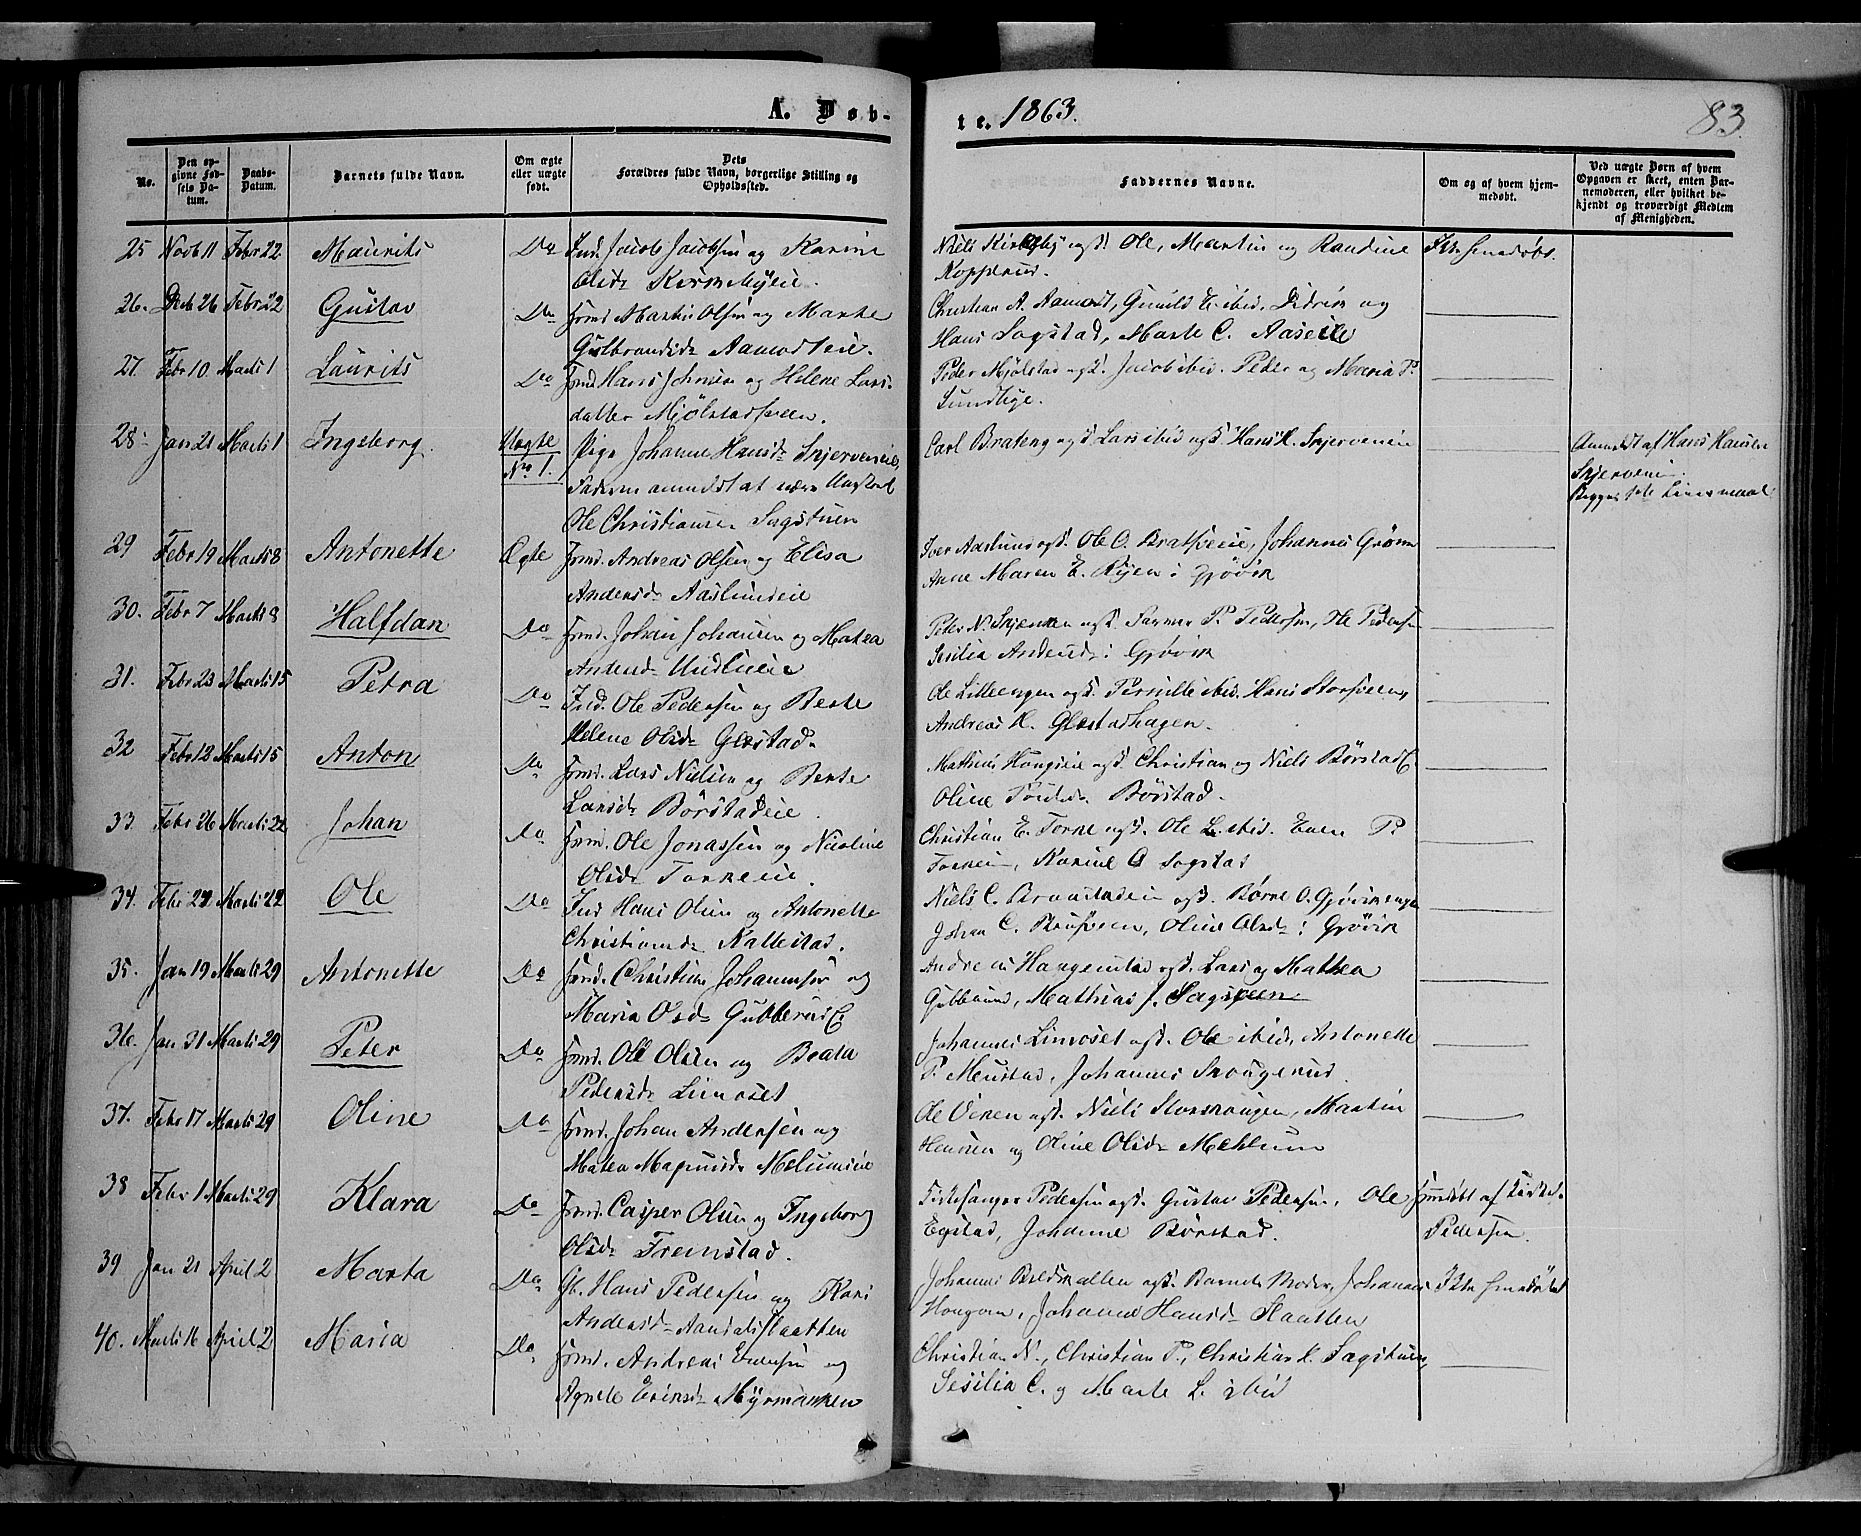 A. Døb-
te. 1863.
83.
No.
Den op-
givne Fød-
sels Da-
tum.
Daabs-
Datum.
Barnets fulde Navn.
Om ægte
eller uægte
født.
Dets
Forældres fulde Navn, borgerlige Stilling og
Opholdssted.
Faddernes Navne.
Om og af hvem hjem-
medøbt.
Ved uægte Børn af hvem
Opgaven er skeet, enten Bar-
nemoderen, eller hvilket be-
kjendt og troværdigt Medlem
af Menigheden.
25 Novb 11 Febr 22 Maurits Do Ind. Jacob Jacobsen og Karine
Olsdr
Niels Kirkeby ogsd. Ole, Martin og Randine
Kopperud.
26. Decb 26 Febr 22 Gustav Do Hmd Martin Olsen og Marte
Gulbrandsdr Aamodteie.
Christian A. Aamodt, Gunild E. ibid, Didrik og
Hans Sogstad, Marte C. Aaseie
27. Febr 10. Marts 1 Laurits Do Hmd. Hans Johnsen og Helene Lars-
datter Mjølstadsveen.
Peder Mjølstad ogsd. Jacob ibid. Peder og Maria P.
28. Jan 21 Marts 1 Ingeborg. Uægte
No 1.
Pige Johanne Hansdr Skjerveneie,
Faderen anmeldt at være Ungkarl
Ole Christiansen Sogstuen
Carl Brateng ogsd Lars ibid ogsd. Hans H. Skjerveneie
Anmeldt af Hans Hansen
Begges 1ste Leiermaal
29 Febr 19 Marts 8 Antonette Ægte Hmd. Andreas Olsen og Elisa
Andersdr Aaslundeie
Iver Aaslund ogsd. Ole O. Bratsveie, Johannes Grønn
Anne Maren E. Ryen i Gjøvik
30. Febr 7 Marts 8 Halfdan Do Hmd. Johan Johansen og Mathea
Andersdr
Peter N. Skjerven ogsd. P. Pedersen, Ole Pedersen
Sesilia Andersdr i Gjøvik
31. Febr 23 Marts 15 Petra Do Ind. Ole Pedersen og Berte
Helene Olsdr Glæstad.
Ole Lilleengen ogsd. Pernille ibid. Hans Storsveen,
Andreas H. Glæstadhagen.
32 Febr 12 Marts 15 Anton Do Hmd. Lars Nielsen og Berte
Larsdr Børstadeie.
Mathias ogsd. Christian og Niels Børstad E.
Oline Børstad.
33. Febr 26 Marts 22 Johan Do Hmd. Ole Jonassen og Nicoline
Olsdr Torkeie.
Christian E. Torke ogsd. Ole L. ibid. Even P.
Torkeie, Karine O Sogstad
34. Febr 22 Marts 22 Ole Do Ind Hans Olsen og Antonette
Christiansdr Kallestad.
Niels C. Braastadeie ogsd. Børre O. Gjøvikenge
Johan C. Oline Olsdr i Gjøvik
35. Jan 19 Marts 29 Antonette Do Hmd. Christian Johannesen og
Maria Olsdr Gubberud E.
Andreas ogsd. Lars og Mathea
Gubberud, Mathias J. Sagsveen.
36. Jan 31 Marts 29 Peter Do Hmd. Ole Olsen og Beata
Pedersdr Limoset
Johannes Limoset ogsd. Ole ibid, Antonette
P. Meustad, Johannes Skougerud
37. Febr 17 Marts 29 Oline Do Hmd. Johan Andersen og
Mathea Magnusdr Melumeie
Ole Viken ogsd. Niels Storskougen, Martin
Hansen og Oline Olsdr Mehlum
38 Febr 1 Marts 29 Klara Do Hmd. Casper Olsen og Ingeborg
Olsdr Fremstad.
Kirkesanger Pedersen ogsd. Gustav Pedersen, Ole
Egstad, Johanne Børstad.
Hmdøbt af Kirkes.
Pedersen.
39 Jan 21 April 2 Marta Do Gb. Hans Pedersen og Kari
Andersdr
Johannes ogsd. Barnets Moder, Johannes
Johanne Hansdr Slaatten
Ikke hmedøbt
40. Marts 16 April 2 Maria Do Hmd. Andreas Evensen og
Agnete Eriksdr Myrmarken
Christian N., Christian P., Christian K. Sagstuen,
Sesilia C. og Marte L. ibid